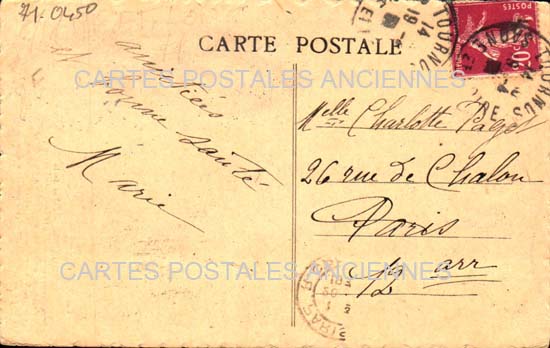 71-0450
CARTE POSTALE
CARTES POSTALES ANCIENNES
amitiés
bonne santé
Marie
Melle Charlotte Paget
26 rue de Chalon
Paris
12 arr
CARTES POSTALES ANCIENNES
POSTES
TOURNUS
TOURNUS
PARIS